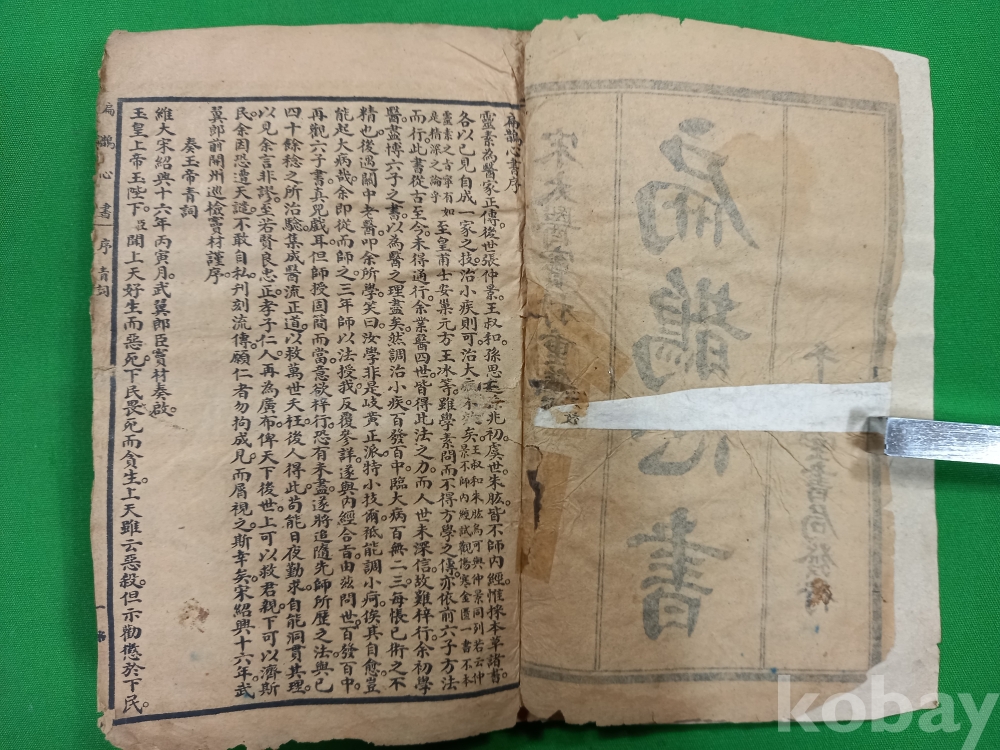 扁鵲心書
扁鵲心書序
靈素為醫家正傳後世張仲景王叔和孫思 兆初虞世朱肱皆不師內經惟採本草諸書
各以己見自成一家之技治小疾則可治大病不 矣王叔和朱肱烏可與仲景同列若云仲景不師內經試觀傷寒金匱一書不本
靈素之旨寧有如是精深之論乎至皇甫士安巢元方王冰等雖學素問而不得方學之傳亦依前六子方法
而行此書從古至今未得通行余業醫四世皆得此法之力而人世未深信故難梓行余初學
醫盡博六子之書以為醫之理盡矣然調治小疾百發百中臨大病百無二三每悵己術之不
精也後遇關中老醫叩余所學笑曰汝學非是岐黃正派特小技爾祗能調小疴俟其自愈豈
能起大病哉余即從而師之三年師以法授我反覆參詳遂與內經合旨由茲問世百發百中
再觀六子書真兒戲耳但師授固簡而當意欲梓行恐有未盡遂將追隨先師所歷之法與己
四十餘稔之所治驗集成醫流正道以救萬世夭枉後人得此苟能日夜勤求自能洞貫其理
以見余言非謬至若賢良忠正孝子仁人再為廣布俾天下後世上可以救君親下可以濟斯
民余因恐遭天譴不敢自私刊刻流傳願仁者勿拘成見而屑視之斯幸矣宋紹興十六年武
翼郎前開州巡檢竇材謹序
奏玉帝青詞
維大宋紹興十六年丙寅月武翼郎臣竇材奏啟
玉皇上帝玉陛下臣聞上天好生而惡死下民畏死而貪生上天雖云惡殺但示勸懲於下民
扁鵲心書 序 青詞 一
kobay